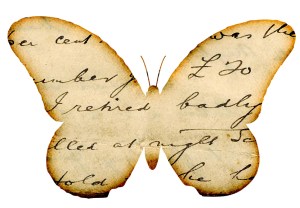 per cent was the
mber £ 70
I retired badly
lled at night Sc
told he h